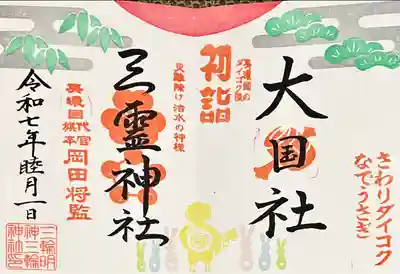 さわりダイコク
なでうさぎ
大国社
初詣
災難除け 治水の神様
三霊神社
美濃国代官
旗本
岡田将監
令和七年睦月一日
三輪明
神三輪
神社印